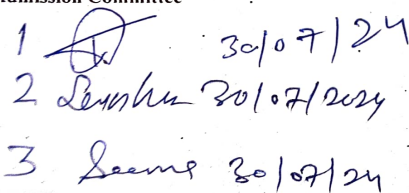 Admission Committee
1 30/07/24
2 30/07/2024
3 Seema 30/07/24